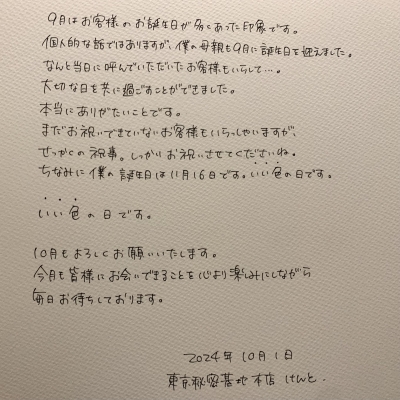 9月はお客様のお誕生日が多くあった印象です。
個人的な話ではありますが、僕の母親も9月に誕生日を迎えました。
なんと当日に呼んでいただいたお客様もいらして…。
大切な日を共に過ごすことができました。
本当にありがたいことです。
まだお祝いできていないお客様もいらっしゃいますが、
せっかくの祝事。しっかりお祝いさせてくださいね。
ちなみに僕の誕生日は11月16日です。いい色の日です。
いい色の日です。
10月もよろしくお願いいたします。
今月も皆様にお会いできることを心より楽しみにしながら
毎日お待ちしております。
2024年10月1日
東京秘密基地本店 けんと.